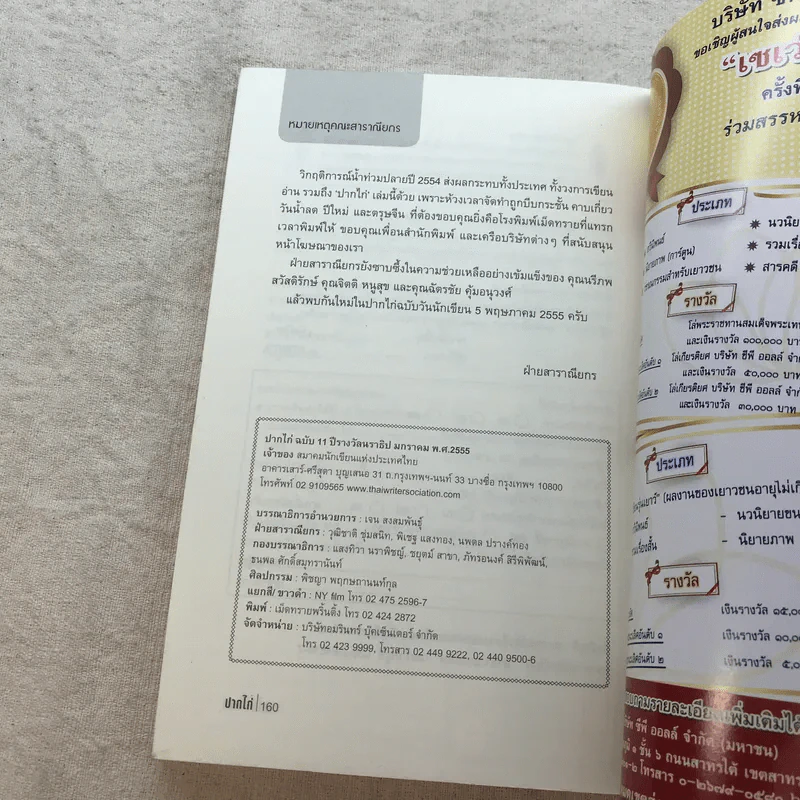 หมายเหตุคณะสาราณียกร
วิกฤติการณ์น้ำท่วมปลายปี 2554 ส่งผลกระทบทั้งประเทศ ทั้งวงการเขียน
อ่าน รวมถึง 'ปากไก่' เล่มนี้ด้วย เพราะห้วงเวลาจัดทำถูกบีบกระชั้น คาบเกี่ยว
วันน้ำลด ปีใหม่ และตรุษจีน ที่ต้องขอบคุณยิ่งคือโรงพิมพ์เม็ดทรายที่แทรก
เวลาพิมพ์ให้ ขอบคุณเพื่อนสำนักพิมพ์ และเครือบริษัทต่างๆ ที่สนับสนุน
หน้าโฆษณาของเรา
ฝ่ายสาราณียกรยังซาบซึ้งในความช่วยเหลืออย่างเข้มแข็งของ คุณนรีภพ
สวัสดิรักษ์ คุณจิตติ หนูสุข และคุณฉัตรชัย คุ้มอนุวงศ์
แล้วพบกันใหม่ในปากไก่ฉบับวันนักเขียน 5 พฤษภาคม 2555 ครับ
ฝ่ายสาราณียกร
ปากไก่ ฉบับ 11 ปีรางวัลนราธิป มกราคม พ.ศ.2555
เจ้าของ สมาคมนักเขียนแห่งประเทศไทย
อาคารเสาร์-ศรีสุดา บุญเสนอ 31 ถ.กรุงเทพฯ-นนท์ 33 บางซื่อ กรุงเทพฯ 10800
โทรศัพท์ 02 9109565 www.thaiwritersociation.com
บรรณาธิการอำนวยการ : เจน สงสมพันธุ์
ฝ่ายสาราณียกร : วุฒิชาติ ชุ่มสนิท, พิเชฐ แสงทอง, นพดล ปรางค์ทอง
กองบรรณาธิการ : แสงทิวา นราพิชญ์, ชยุตม์ สาขา, ภัทรอนงค์ สิรีพิพัฒน์,
ธนพล ศักดิ์สมุทรานันท์
ศิลปกรรม : พิชญา พฤกษถานนท์กุล
แยกสี/ ขาวดำ : NY film โทร 02 475 2596-7
พิมพ์ : เม็ดทรายพริ้นติ้ง โทร 02 424 2872
จัดจำหน่าย : บริษัทอมรินทร์ บุ๊คเซ็นเตอร์ จำกัด
โทร 02 423 9999, โทรสาร 02 449 9222, 02 440 9500-6
ปากไก่ | 160
บริษัท
ขอเชิญผู้สนใจส่งผ
"เซเว
ครั้งที่
ร่วมสรรห
ประเภท
นวนิย
นิยายภาพ (การ์ตูน)
รวมเรื่
วรรณกรรมสำหรับเยาวชน
สารคดี
รางวัล
โล่พระราชทานสมเด็จพระเทพ
และเงินรางวัล ๑๐๐,๐๐๐ บาท
โล่เกียรติยศ บริษัท ซีพี ออลล์ จำกั
และเงินรางวัล ๕๐,๐๐๐ บาท
โล่เกียรติยศ บริษัท ซีพี ออลล์ จำกั
และเงินรางวัล ๓๐,๐๐๐ บาท
ประเภท
(ผลงานของเยาวชนอายุไม่เกิ
- นวนิยายขน
- นิยายภาพ
รางวัล
เงินรางวัล ๑๕,๐
เงินรางวัล ๑๐,๐
เงินรางวัล ๕,๐
บถามรายละเอียดเพิ่มเติมได้
ซีพี ออลล์ จำกัด (มหาชน)
๑ ชั้น ๖ ถนนสาทรใต้ เขตสาทร
โทรสาร ๐-๒๖๗๙-๐๐๕๐